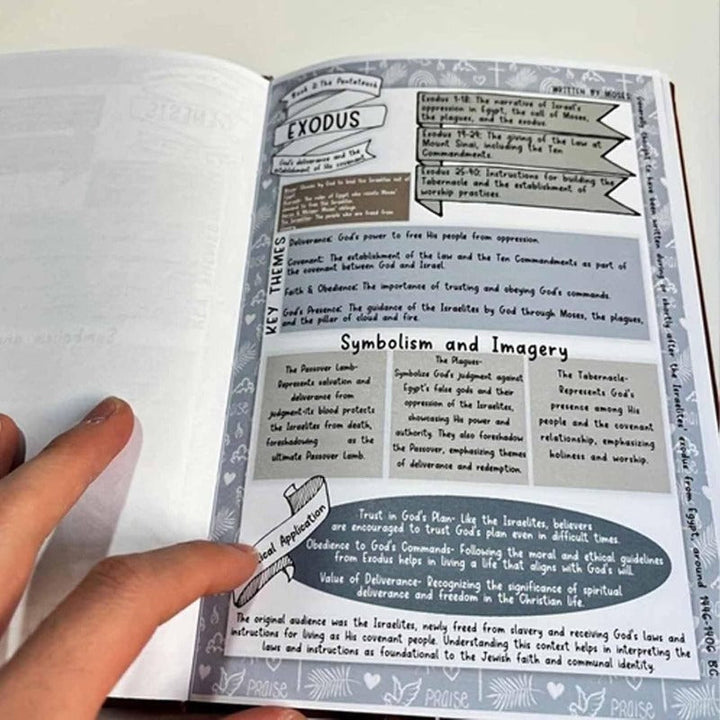 Book 2: The Pentateuch
EXODUS
God's deliverance and the
establishment of His covenant.
WRITTEN BY MOSES
Exodus 1-18: The narrative of Israel's
oppression in Egypt, the call of Moses,
the plagues, and the exodus.
Exodus 19-24: The giving of the Law at
Mount Sinai, including the Ten
Commandments.
Exodus 25-40: Instructions for building the
Tabernacle and the establishment of
worship practices.
Moses: Chosen by God to lead the Israelites out of
Egypt.
Pharaoh: The ruler of Egypt who resists Moses'
demand to free the Israelites.
Aaron & Miriam: Moses' siblings
The Israelites: The people who are freed from
KEY THEMES
Deliverance: God's power to free His people from oppression.
Covenant: The establishment of the Law and the Ten Commandments as part of
the covenant between God and Israel.
Faith & Obedience: The importance of trusting and obeying God's commands.
God's Presence: The guidance of the Israelites by God through Moses, the plagues,
and the pillar of cloud and fire.
Symbolism and Imagery
The Passover Lamb-
Represents salvation and
deliverance from
judgment-its blood protects
the Israelites from death,
foreshadowing as the
ultimate Passover Lamb.
The Plagues-
Symbolize God's judgment against
Egypt's false gods and their
oppression of the Israelites,
showcasing His power and
authority. They also foreshadow
the Passover, emphasizing themes
of deliverance and redemption.
The Tabernacle-
Represents God's
presence among His
people and the covenant
relationship, emphasizing
holiness and worship.
Application
Trust in God's Plan- Like the Israelites, believers
are encouraged to trust God's plan even in difficult times.
Obedience to God's Commands- Following the moral and ethical guidelines
from Exodus helps in living a life that aligns with God's will.
Value of Deliverance- Recognizing the significance of spiritual
deliverance and freedom in the Christian life.
The original audience was the Israelites, newly freed from slavery and receiving God's laws and
instructions for living as His covenant people. Understanding this context helps in interpreting the
laws and instructions as foundational to the Jewish faith and communal identity.
Generally thought to have been written during or shortly after the Israelites' exodus from Egypt, around 1446-1406 BC
PRAISE
PRAISE
PRAISE
GENESIS